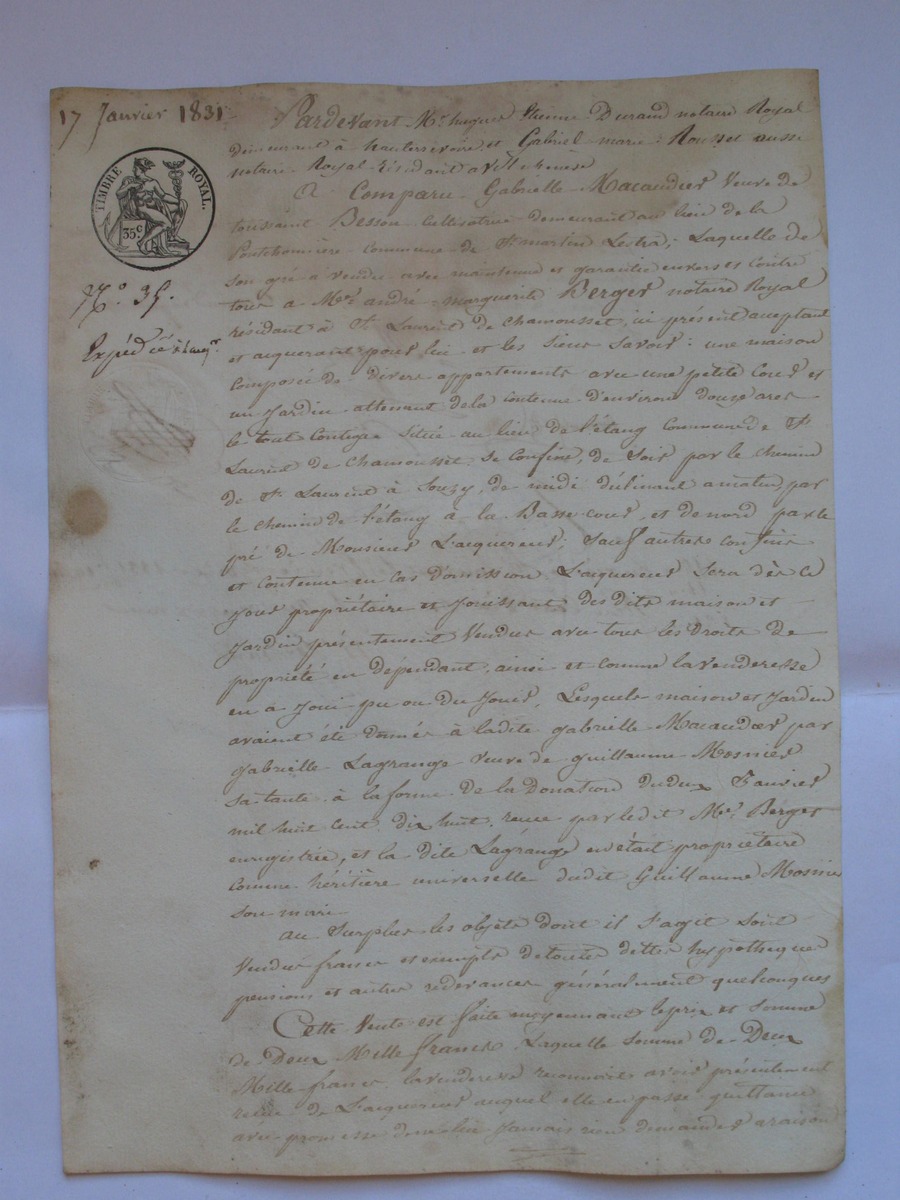 17 Janvier 1831
TIMBRE ROYAL.
35c
N.o 35.
Expédiée
Pardevant Me. hugues Etienne Durand notaire Royal
demeurant à hauterivoire et Gabriel marie Rousset aussi
notaire Royal résidant a
A Comparu Gabrielle Macaudier veuve de
toussaint Besson Cultivatrice demeurant au lieu de la
commune de St. martin Lestra, Laquelle de
son gré a vendu avec maintenue et garantie envers et contre
tous a Me. andré marguerite Berger notaire Royal
résidant à St. Laurent de Chamousset, ici présent acceptant
et acquerant pour lui et les siens savoir : une maison
composée de divers appartements avec une petite Cour et
un Jardin attenant de la Contenue d'environ douze ares
le tout Contigu situé au lieu de l'étang Commune de St.
Laurent de Chamousset. Se Confine, de soir par le chemin
de St. Laurent à Souzy, de midi déclinant a matin par
le chemin de l'étang à la Basse Cour, et de nord par le
pré de Monsieur L'acquereur, Sauf autres confins
et contenue en cas d'omission L'acquereur Sera dès ce
jour propriétaire et Jouissant des dits maison et
Jardin présentement Vendus avec tous les Droits de
propriété en dépendant, ainsi et comme la venderesse
en a Joui pu ou du Jouir, Lesquels maison et Jardin
avaient été donnés à ladite gabrielle Macaudier par
gabrielle Lagrange veuve de guillaume Mosnier
sa tante à la forme de la Donation du deux Janvier
mil huit Cent dix huit, recue par ledit Me. Berger
enregistrée, et la dite Lagrange en était propriétaire
Comme héritière universelle dudit Guillaume Mosnier
son mari.
au Surplus les objets dont il s'agit sont
Vendus francs et exempts de toutes dettes hypotheques
pensions et autres redevances généralement quelconques
Cette Vente est faite moyennant le prix et somme
de Deux Mille francs Laquelle somme de Deux
Mille francs, la venderesse reconnait avoir présentement
recue de L'acquereur auquel elle en passe quittance
avec promesse de ne lui Jamais rien demander a raison